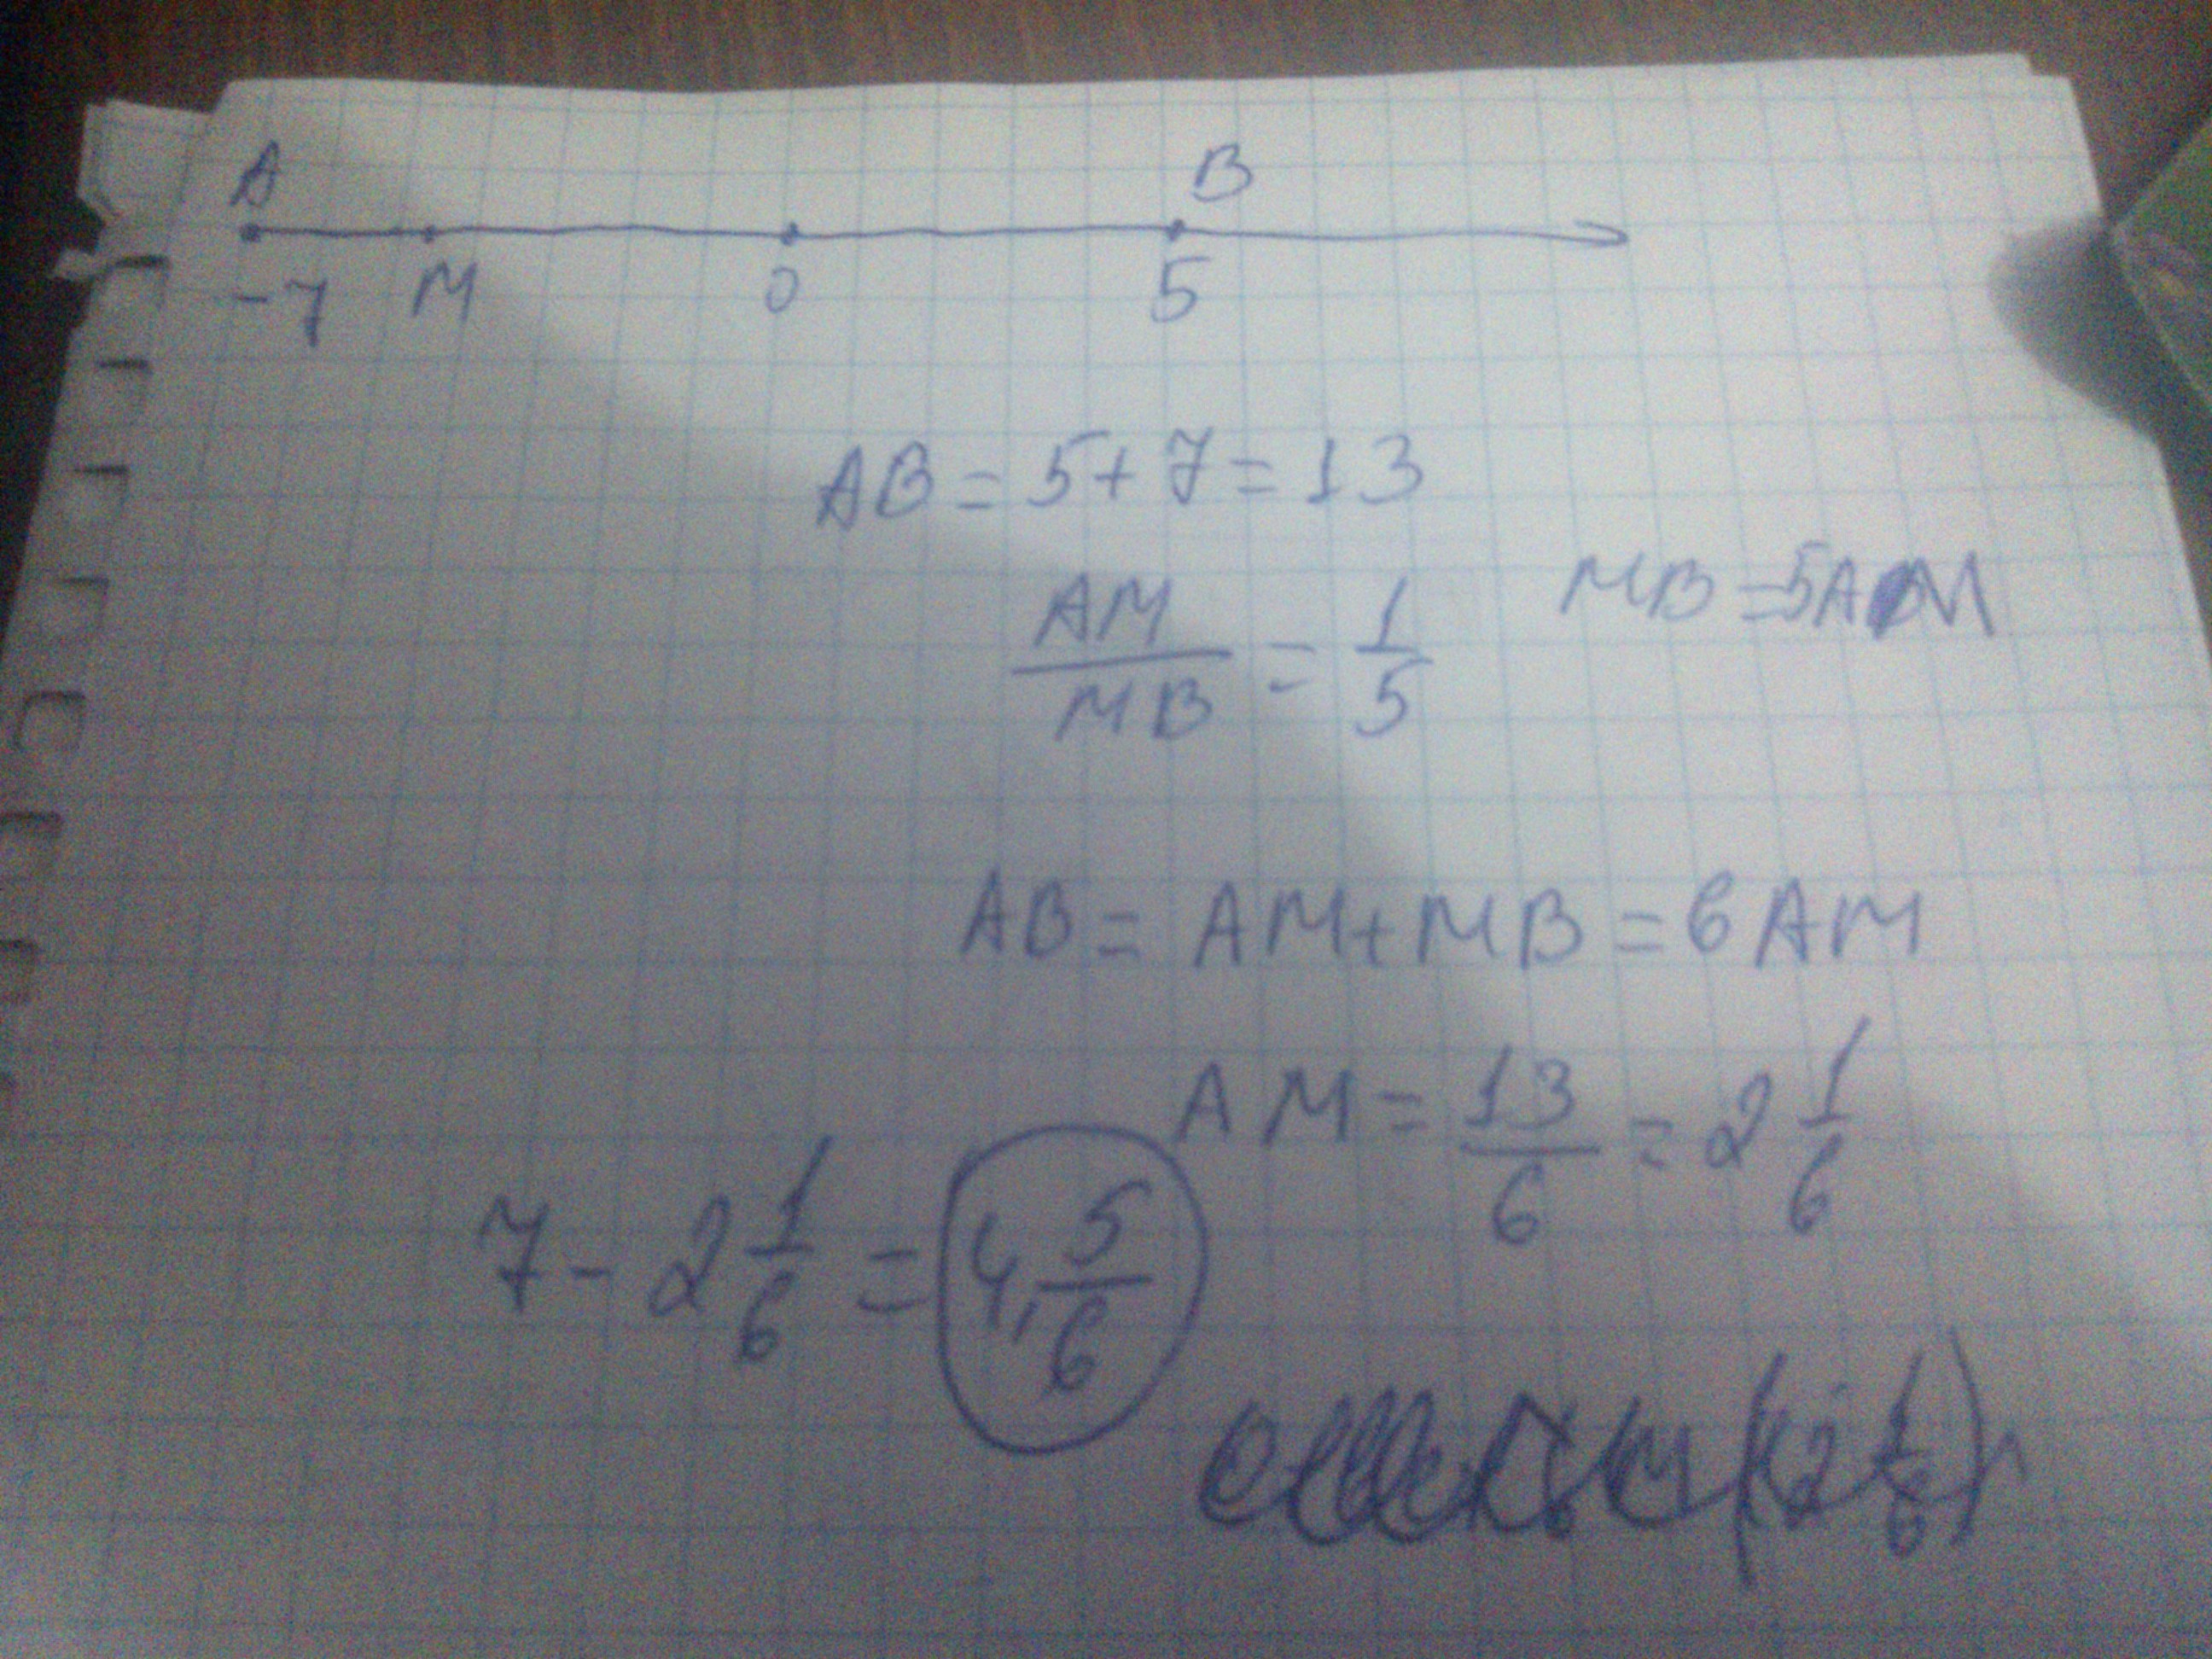 A B
-7 M 0 5
AB = 5 + 7 = 13
AM/MB = 1/5 MB = 5AM
AB = AM + MB = 6AM
AM = 13/6 = 2 1/6
7 - 2 1/6 = 4, 5/6
(2 1/6)